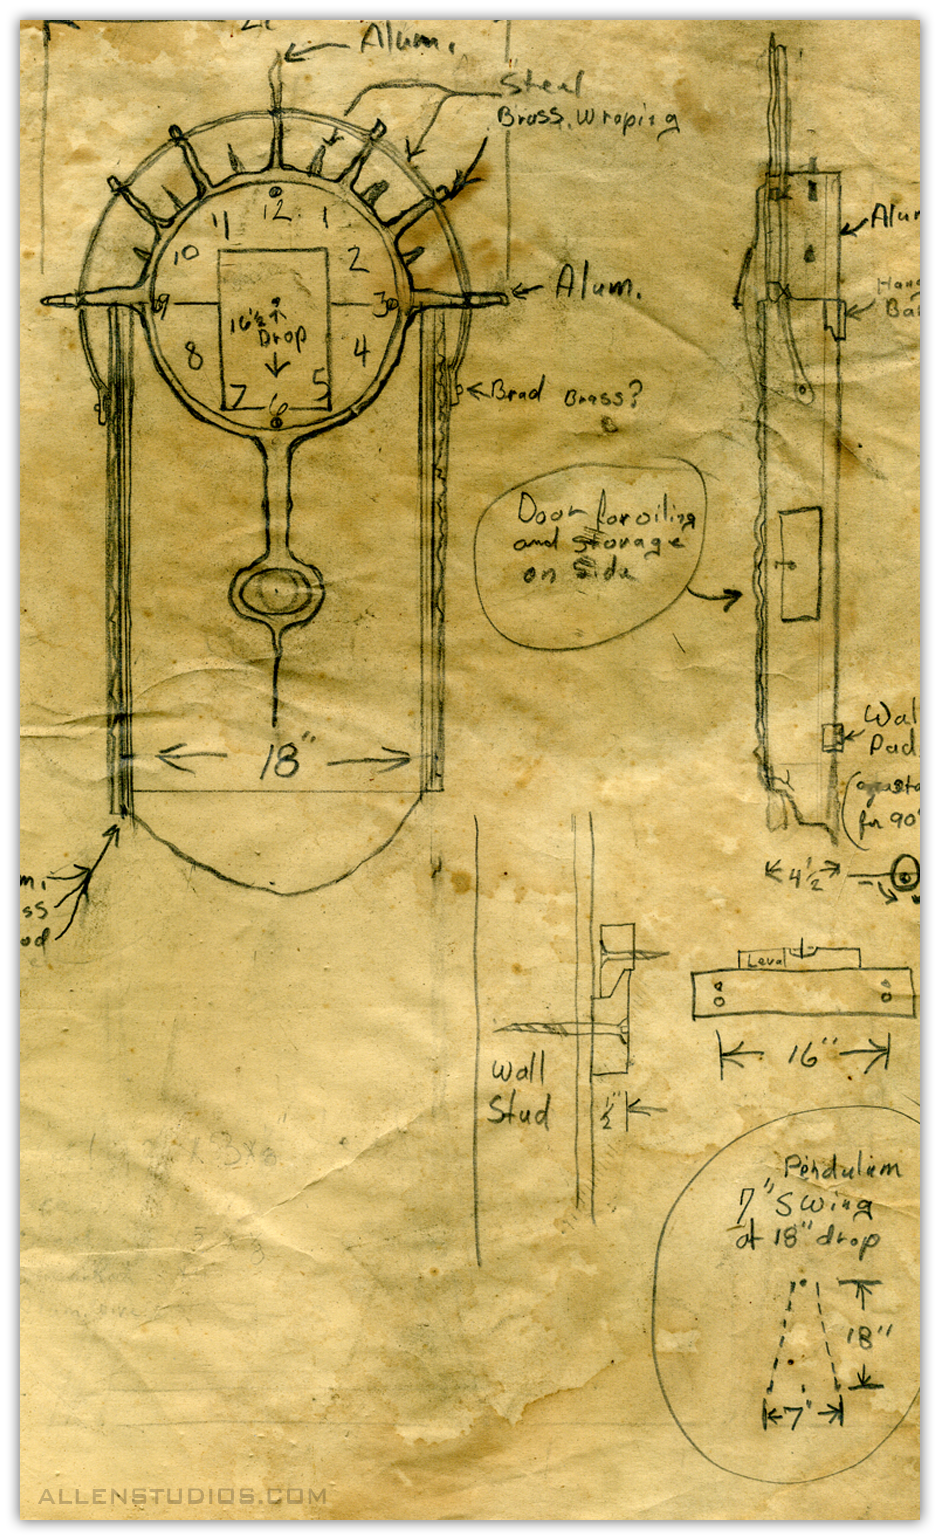 Alum.
Steal
Brass. Wroping
12
1
2
3
4
5
6
7
8
9
10
11
16 1/2
Drop
Alum.
Alum
Bar
Brad Brass?
Door for oiling
and storage
on Side
Wal
Pad
for 90°
18"
4 1/2
m.
ss
od
Leval
16"
Wall
Stud
1/2"
Pendulum
7" Swing
at 18" drop
18"
7"
ALLENSTUDIOS.COM